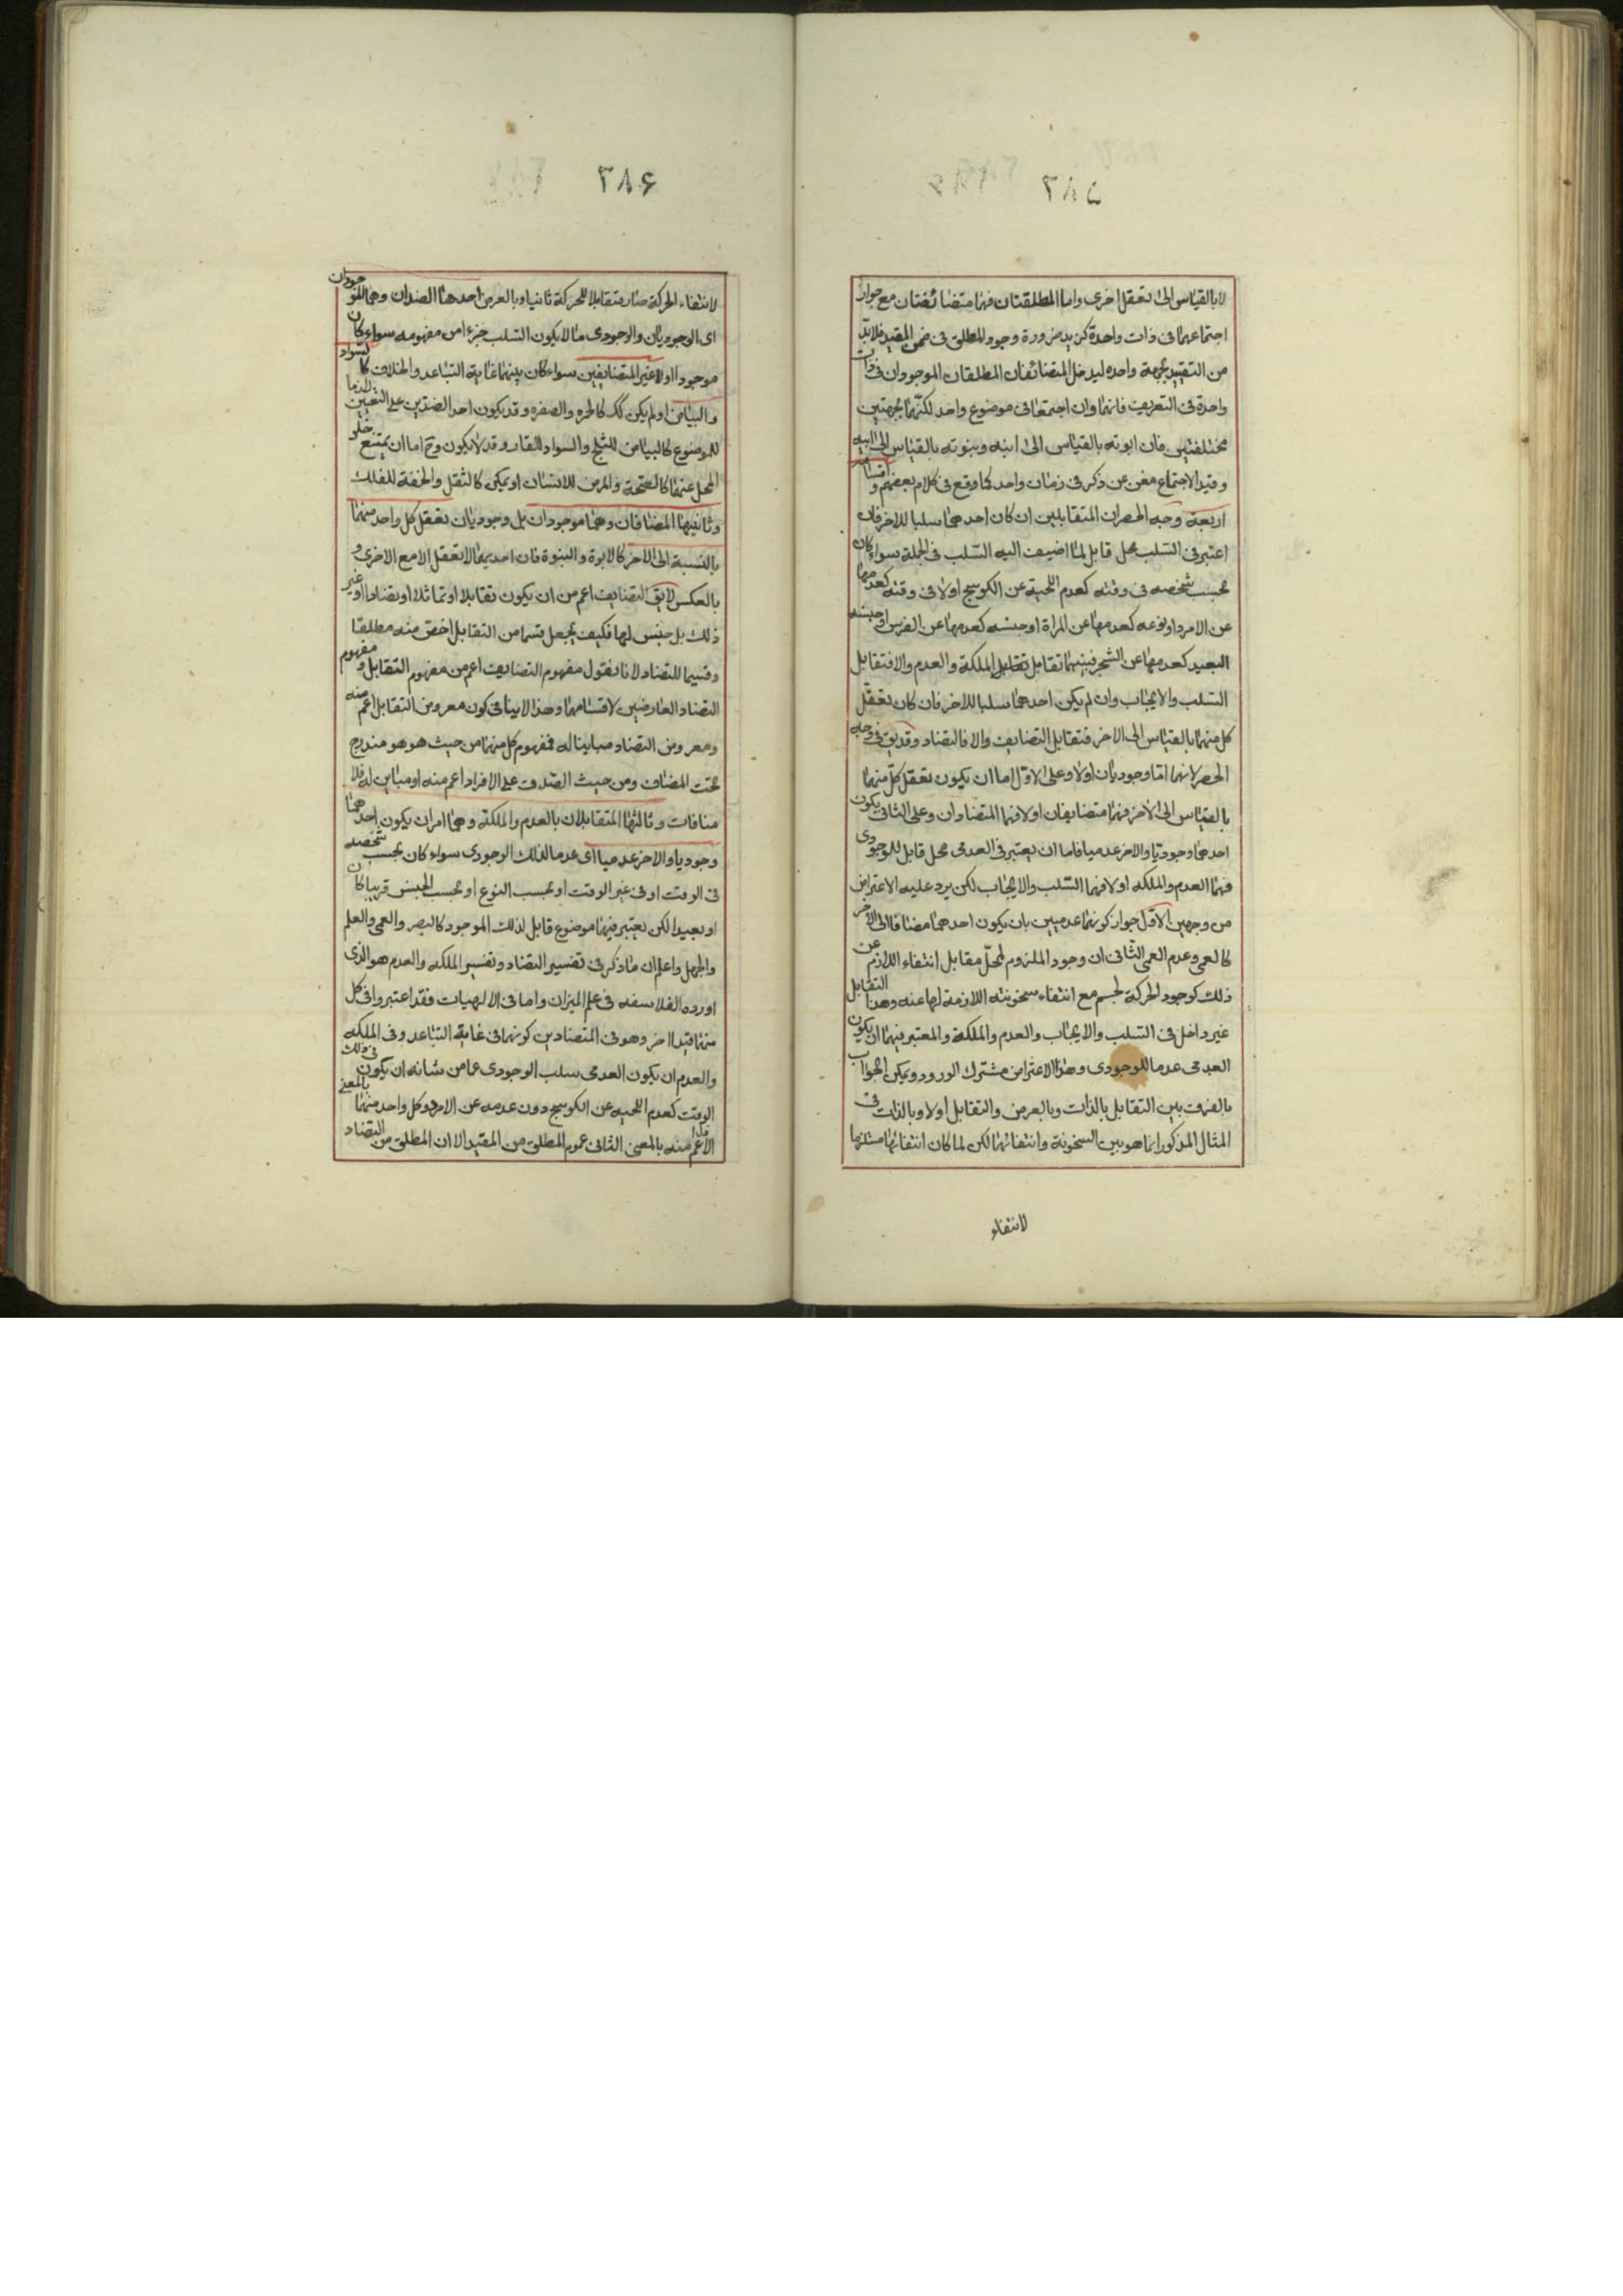 ٣٨٥
لا بالقياس الى تعقل اخرى واما المطلقتان فهما متضائفتان مع جواز
اجتماعهما فى ذات واحدة كزيد ضرورة وجود المطلق فى ضمن المقيد فلابد
من التقييد بجهة واحده ليدخل المتضائفان المطلقان الموجودان فى ذات
واحدة فى التعريف فانهما وان اجتمعا فى موضوع واحد لكنهما بجهتين
مختلفتين فان ابوته بالقياس الى ابنه وبنوته بالقياس الى ابيه
وقيد الاجتماع مغن عن ذكر فى زمان واحد كما وقع فى كلام بعضهم و اقسامه
اربعة وجه الحصر ان المتقابلين ان كان احدهما سلبا للاخر فان
اعتبر فى السلب محل قابل لما اضيف اليه السلب فى الجملة سواء كان
بحسب شخصه فى وقته كعدم اللحية عن الكوسج او لا فى وقته كعدمها
عن الامرد او نوعه كعدمها عن المراة او جنسه كعدمها عن الفرس او جنسه
البعيد كعدمها عن الشجر فبينهما تقابل تقابل الملكة والعدم والا فتقابل
السلب والايجاب وان لم يكن احدهما سلبا للاخر فان كان تعقل
كل منهما بالقياس الى الاخر فتقابل التضايف والا فالتضاد وقد يق فى وجه
الحصر لانهما اما وجوديان اولا وعلى الاول اما ان يكون تعقل كل منهما
بالقياس الى الاخر فهما متضايفان او لا فهما المتضادان وعلى الثانى يكون
احدهما وجوديا والاخر عدميا فاما ان يعتبر فى العدمى محل قابل للوجودى
فهما العدم والملكه او لا فهما السلب والايجاب لكن يرد عليه الاعتراض
من وجهين الاول جواز كونهما عدميين بان يكون احدهما مضافا الى الاخر
كالعمى وعدم العمى الثانى ان وجود الملزوم لمحل مقابل انتفاء اللازم عن
ذلك كوجود الحركة لجسم مع انتفاء سخونته اللازمة لها عنه وهذا التقابل
غير داخل فى السلب والايجاب والعدم والملكة والمعتبر فيهما ان يكون
العدمى عدما للوجودى وهذا الاعتراض مشترك الورود ويمكن الجواب
بالفرق بين التقابل بالذات وبالعرض والتقابل اولا وبالذات فى
المثال المذكور انما هو بين السخونة وانتفائها لكن لما كان انتفائها مستلزما
لانتفاء
٣٨۶
لانتفاء الحركة صار متقابلا للحركة ثانيا وبالعرض احدهما الضدان وهما الموجودان
اى الوجوديان والوجودى ما لا يكون السلب جزءا من مفهومه سواء كان
موجودا اولا غير المتضايفين سواء كان بينهما غاية التباعد والخلاف كالسواد
والبياض او لم يكن كك كالحمره والصفره وقد يكون احد الضدين على التعيين لازما
للموضوع كالبياض للثلج والسواد للقار وقد لا يكون وح اما ان يمتنع خلو
المحل عنهما كالصحة والمرض للانسان او يمكن كالثقل والخفة للفلك
وثانيها المضافان وهما موجودان بل وجوديان تعقل كل واحد منهما
بالنسبة الى الاخر كالابوة والبنوة فان احديهما لا تعقل الا مع الاخرى و
بالعكس لا يق التضايف اعم من ان يكون تقابلا او تماثلا او تضادا او غير
ذلك بل جنس لها فكيف يجعل قسما من التقابل اخص منه مطلقا
وقسيما للتضاد لانا نقول مفهوم التضايف اعم من مفهوم التقابل و مفهوم
التضاد العارضين لاقسامهما وهذا لا ينافى كون معروض التقابل اعم منه
ومعروض التضاد مباينا له فمفهوم كل منهما من حيث هو هو مندرج
تحت المضاف ومن حيث الصدق على الافراد اعم منه او مباين له فلا
منافات وثالثها المتقابلان بالعدم والملكة وهما امران يكون احدهما
وجوديا والاخر عدميا اى عدما لذلك الوجودى سواء كان بحسب شخصه
فى الوقت او فى غير الوقت او بحسب النوع او بحسب الجنس قريبا كان
او بعيدا لكن يعتبر فيهما موضوع قابل لذلك الموجود كالبصر والعمى والعلم
والجهل واعلم ان ما ذكر فى تفسير التضاد وتفسير الملكه والعدم هو الذى
اورده الفلاسفه فى علم الميزان واما فى الالهيات فقد اعتبروا فى كل
منهما قيدا اخر وهو فى المتضادين كونهما فى غاية التباعد وفى الملكه
والعدم ان يكون العدمى سلب الوجودى عما من شانه ان يكون فى ذلك
الوقت كعدم اللحيه عن الكوسج دون عدمه عن الامرد وكل واحد منهما بالمعنى
الاعم منه بالمعنى الثانى عموم المطلق من المقيد الا ان المطلق من التضاد